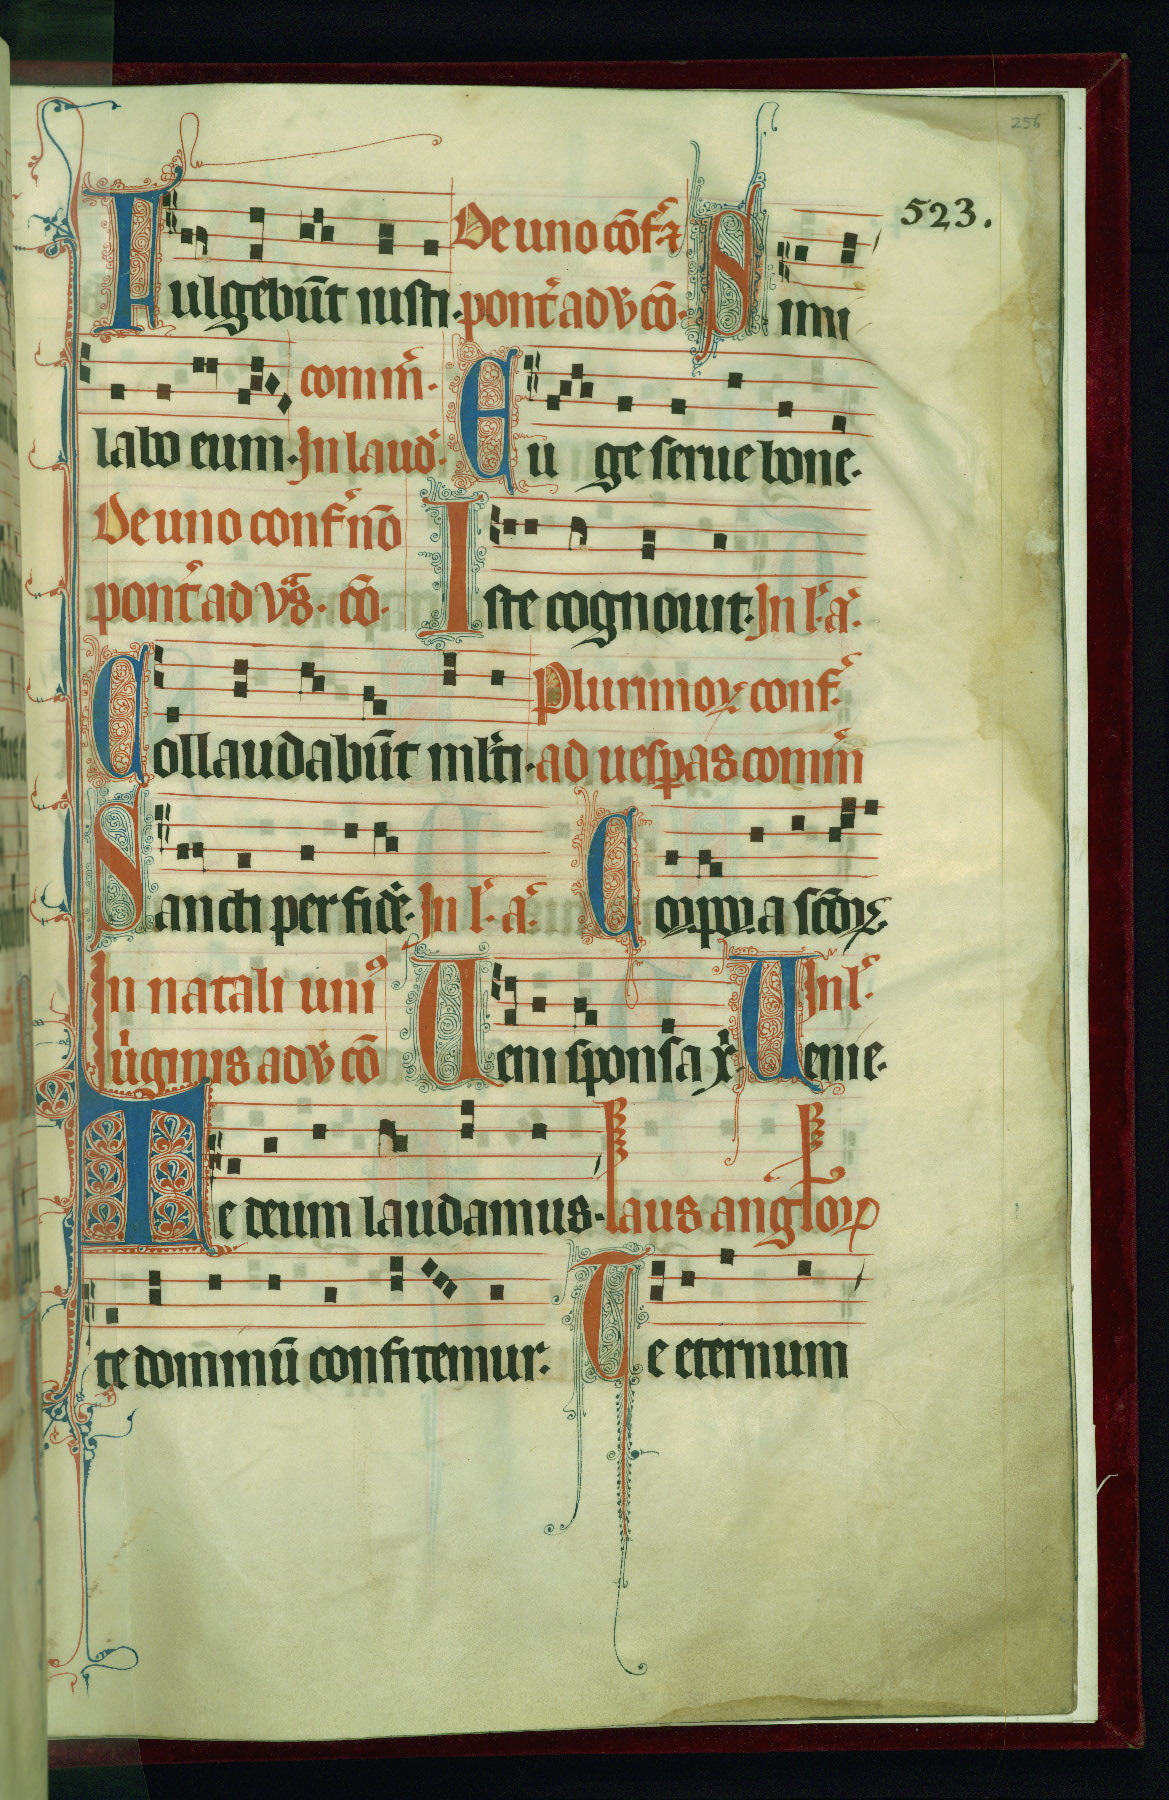 256
523.
De uno cōf. τ
Fulgebūt iusti. pont̄ ad v̄ cō. Simi
comm̄.
labo eum. In laud. Euge serue bone.
De uno conf. nō
pont̄ ad vs̄. cō. Iste cognouit. In l. a.
Plurimoꝝ conf.
Collaudabūt ml̄ti. ad uesꝑas comm̄
Sancti per fidē. In l. a. Corpora sc̄oꝝ
In natali uniꝰ In l.
uͥginis ad v̄ cō Ueni sponsa xͥ. Uenie.
Te deum laudamus. laus anglorꝝ
te dominū confitemur. Te eternum